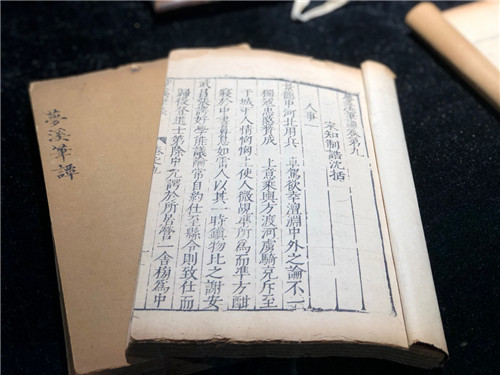 夢溪筆譚
夢溪筆談卷第九
宋知制誥沈括
人事一
景德中河北用兵 車駕欲幸澶淵中外之論不一
獨寇忠愍贊成 上意乘輿方渡河虜騎充斥至
于城下人情恟恟上使人微覘準所為而準方酣
寢於中書鼻息如雷人以其一時鎮物比之謝安
武昌張諤好學能議論常自約仕至縣令則致仕而
歸後登進士第除中允諤於所居營一舍榜為中
卷之九